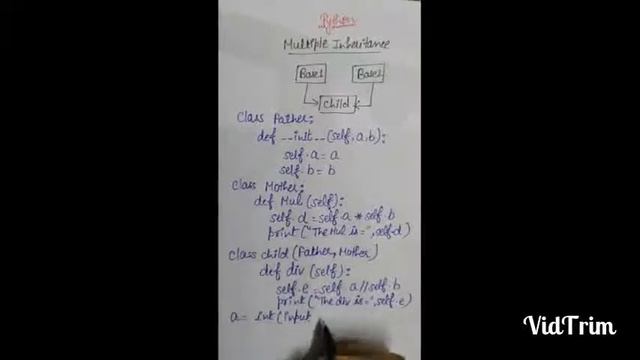 Python
Multiple Inheritance
Base1 Base2
Child
Class Father:
def __init__(self, a, b):
self.a = a
self.b = b
Class Mother:
def Mul (self):
self.d = self.a * self.b
print ("The Mul is=", self.d)
Class child (Father, Mother)
def div (self):
self.e = self a // self.b
print ("The div is=", self.e)
a = int (input
VidTrim